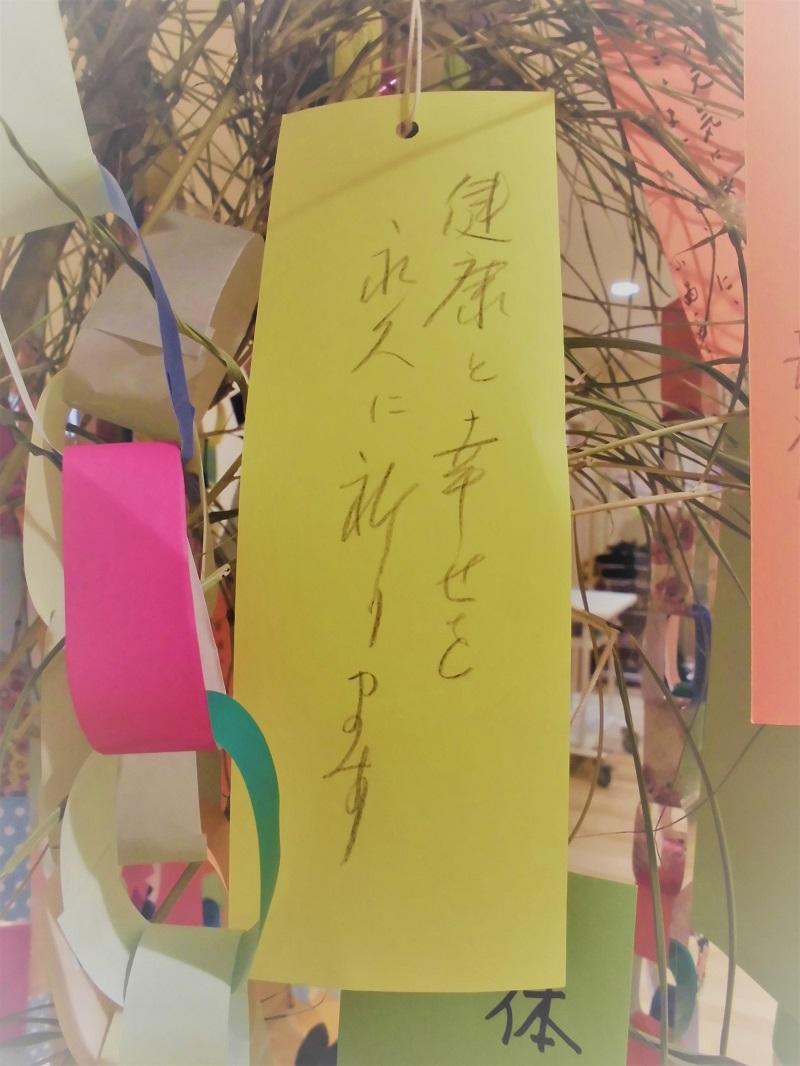 健康と幸せを
永久に祈ります
体